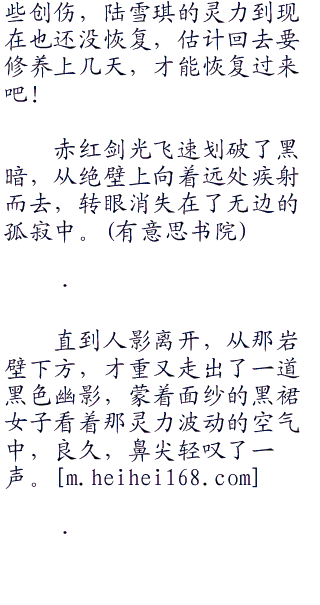 些创伤，陆雪琪的灵力到现
在也还没恢复，估计回去要
修养上几天，才能恢复过来
吧！
赤红剑光飞速划破了黑
暗，从绝壁上向着远处疾射
而去，转眼消失在了无边的
孤寂中。(有意思书院)
.
直到人影离开，从那岩
壁下方，才重又走出了一道
黑色幽影，蒙着面纱的黑裙
女子看着那灵力波动的空气
中，良久，鼻尖轻叹了一
声。[m.heihei168.com]
.